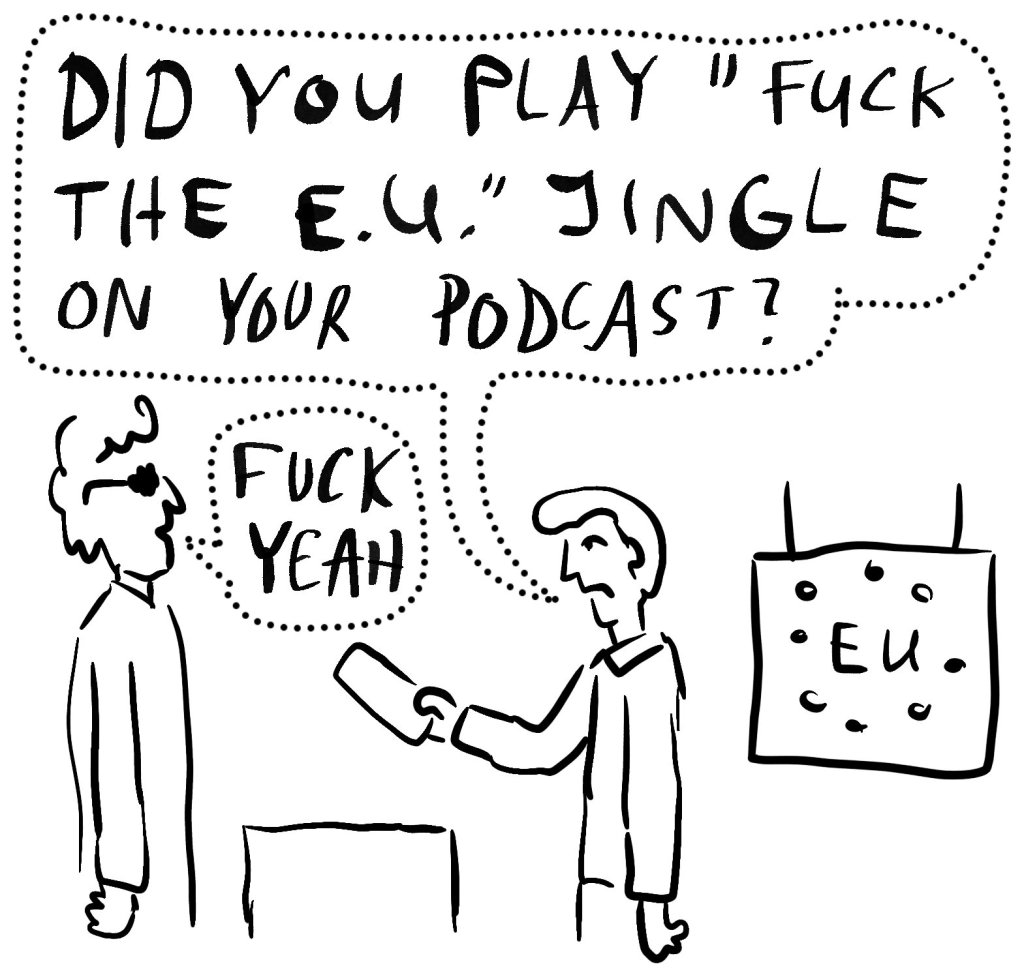 DID YOU PLAY "FUCK
THE E.U." JINGLE
ON YOUR PODCAST?
FUCK
YEAH
EU